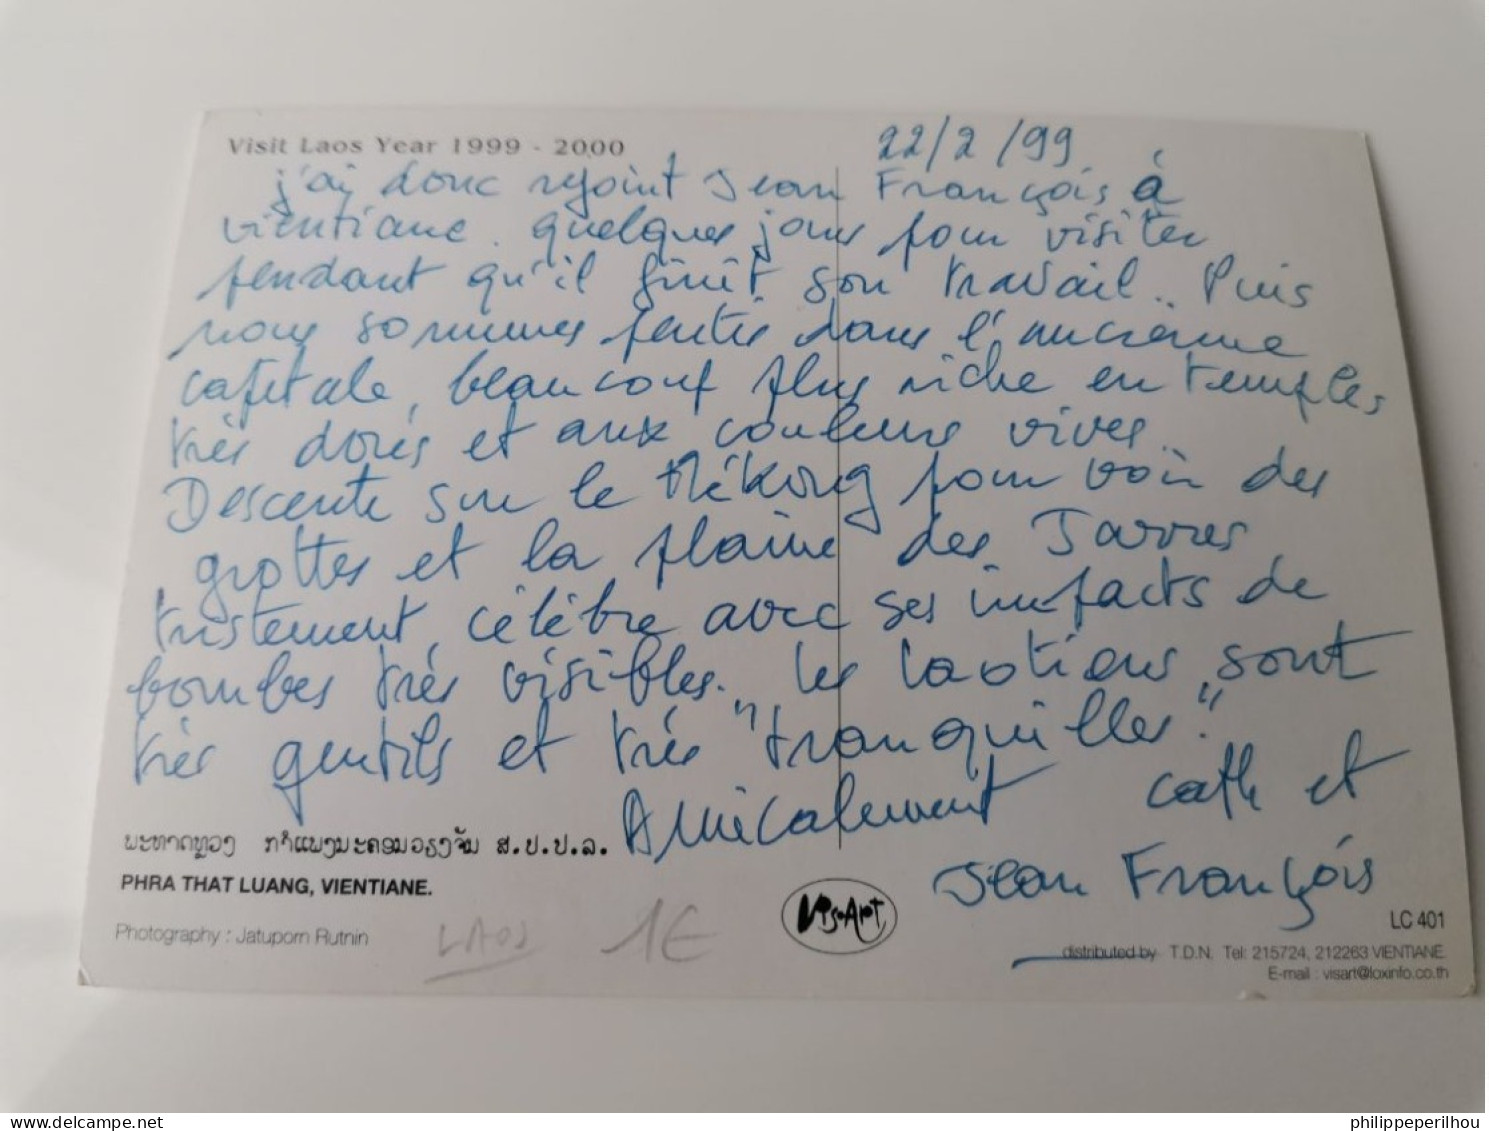 Visit Laos Year 1999 - 2000
22/2/99
j'ai donc rejoint Jean François à
vientiane. quelques jours pour visiter
pendant qu'il finit son travail.. Puis
nous sommes partis dans l'ancienne
capitale, beaucoup plus riche en temples
très dorés et aux couleurs vives.
Descente sur le Mékong pour voir des
grottes et la plaine des Jarres
tristement célèbre avec ses impacts de
bombes très visibles. Les laotiens sont
très gentils et très "tranquilles".
Amicalement Cath et
Jean François
ພະທາດຫຼວງ ກຳແພງນະຄອນວຽງຈັນ ສ.ປ.ປ.ລ.
PHRA THAT LUANG, VIENTIANE.
Photography : Jatuporn Rutnin
LAOS 1E
VisArt
LC 401
distributed by T.D.N. Tel: 215724, 212263 VIENTIANE.
E-mail : visart@loxinfo.co.th
www.delcampe.net
philippeperilhou